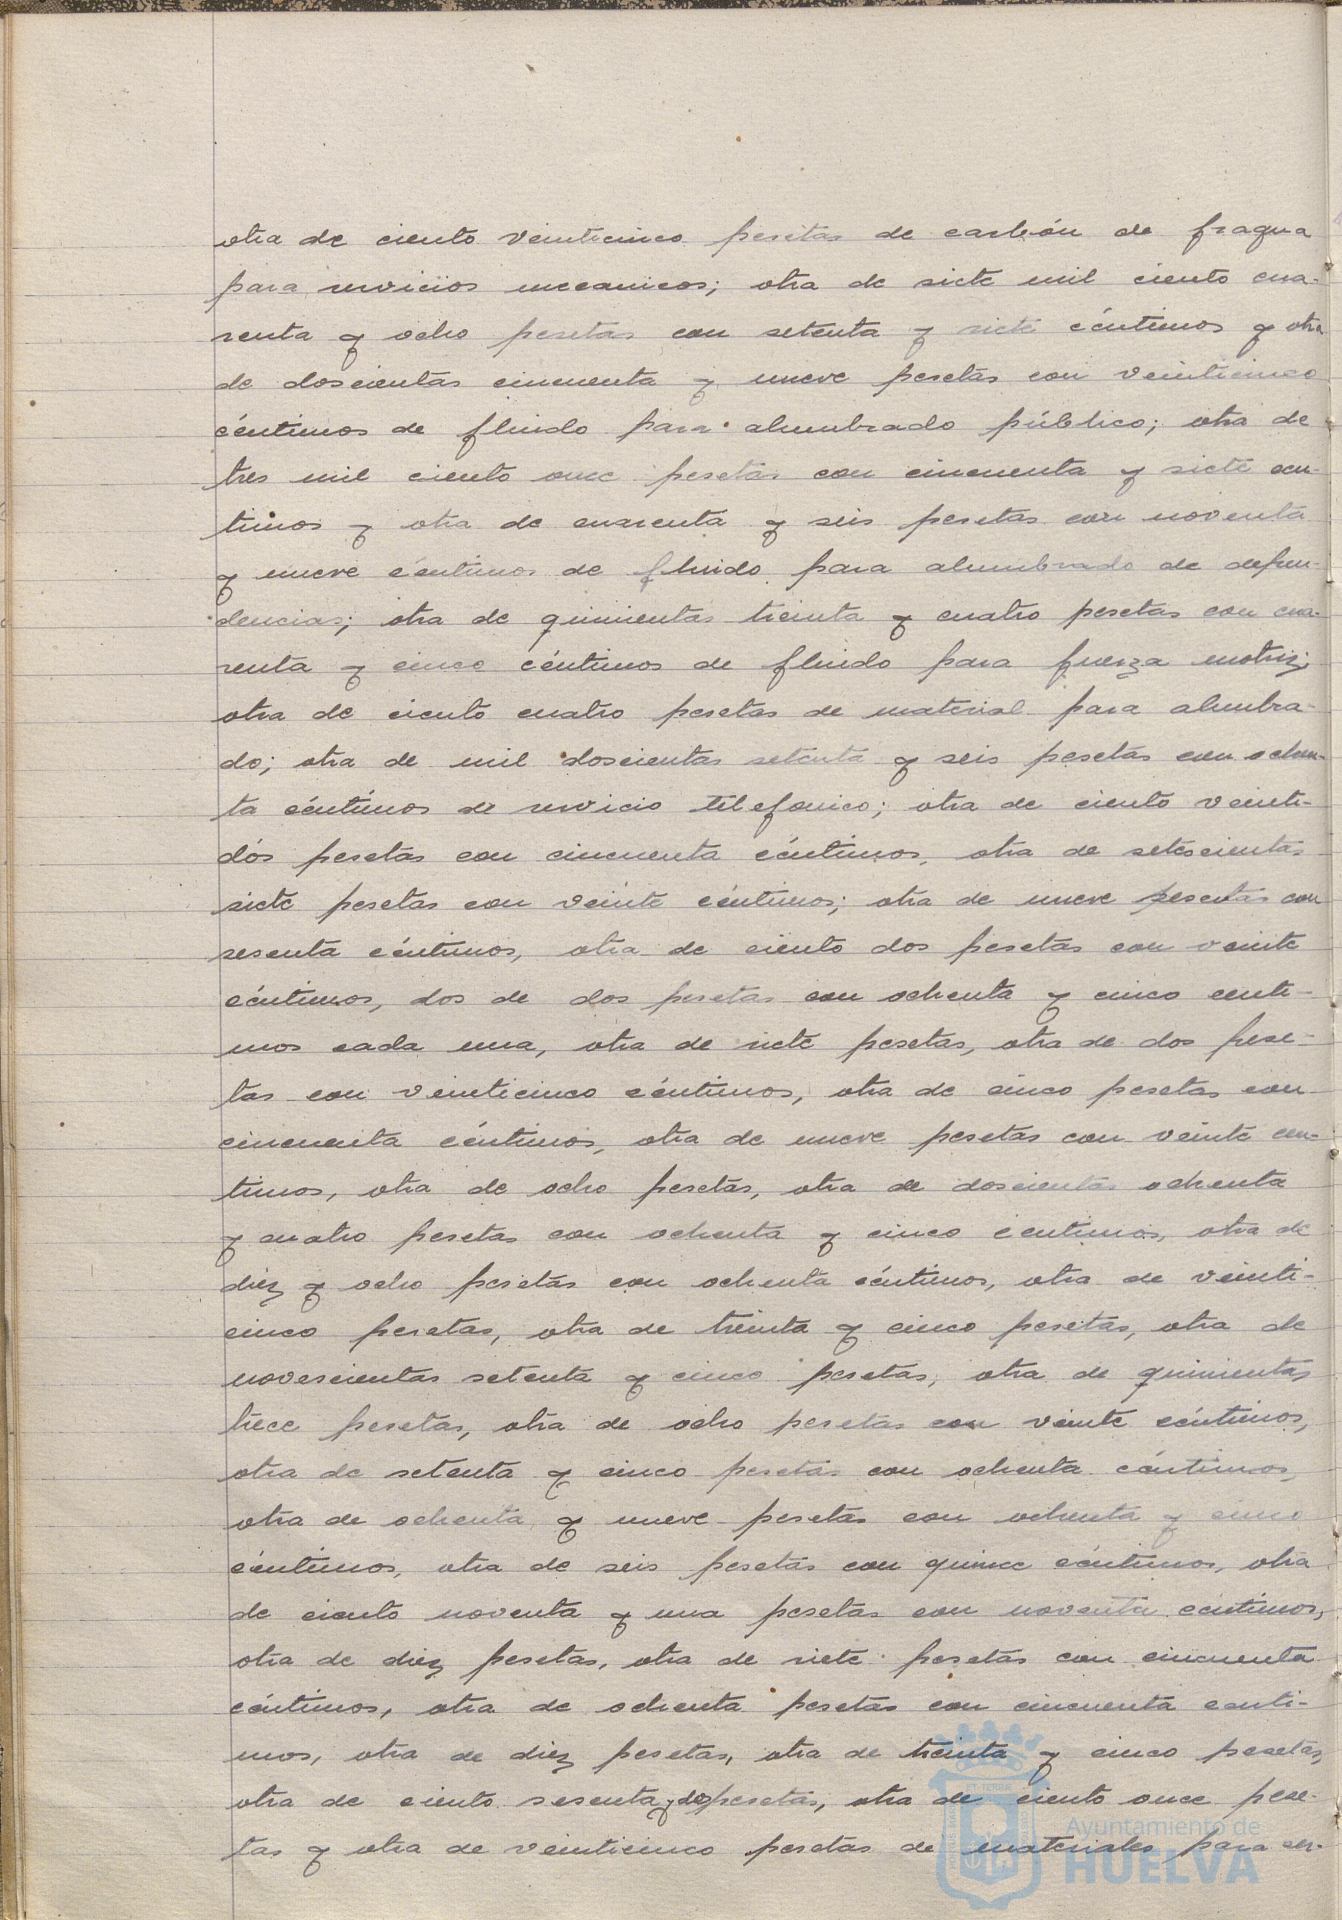 otra de ciento veinticinco pesetas de carbón de fragua
para servicios mecanicos; otra de siete mil ciento cua-
renta y ocho pesetas con setenta y siete céntimos y otra
de doscientas cincuenta y nueve pesetas con veinticinco
céntimos de fluido para alumbrado público; otra de
tres mil ciento once pesetas con cincuenta y siete cen-
timos y otra de cuarenta y seis pesetas con noventa
y nueve céntimos de fluido para alumbrado de depen-
dencias; otra de quinientas treinta y cuatro pesetas con cua-
renta y cinco céntimos de fluido para fuerza motriz;
otra de ciento cuatro pesetas de material para alumbra-
do; otra de mil doscientas setenta y seis pesetas con ochen-
ta céntimos de servicio telefonico; otra de ciento veinti-
dós pesetas con cincuenta céntimos, otra de setescientas
siete pesetas con veinte céntimos; otra de nueve pesetas con
sesenta céntimos, otra de ciento dos pesetas con veinte
céntimos, dos de dos pesetas con ochenta y cinco centi-
mos cada una, otra de siete pesetas, otra de dos pese-
tas con veinticinco céntimos, otra de cinco pesetas con
cincuenta céntimos, otra de nueve pesetas con veinte cen-
timos, otra de ocho pesetas, otra de doscientas ochenta
y cuatro pesetas con ochenta y cinco centimos, otra de
diez y ocho pesetas con ochenta céntimos, otra de veinti-
cinco pesetas, otra de treinta y cinco pesetas, otra de
novescientas setenta y cinco pesetas, otra de quinientas
trece pesetas, otra de ocho pesetas con veinte céntimos,
otra de setenta y cinco pesetas con ochenta céntimos,
otra de ochenta y nueve pesetas con ochenta y cinco
céntimos, otra de seis pesetas con quince céntimos, otra
de ciento noventa y una pesetas con noventa céntimos,
otra de diez pesetas, otra de siete pesetas con cincuenta
céntimos, otra de ochenta pesetas con cincuenta centi-
mos, otra de diez pesetas, otra de treinta y cinco pesetas,
otra de ciento sesenta y dos pesetas, otra de ciento once pese-
tas y otra de veinticinco pesetas de materiales para ser-
Ayuntamiento de
HUELVA